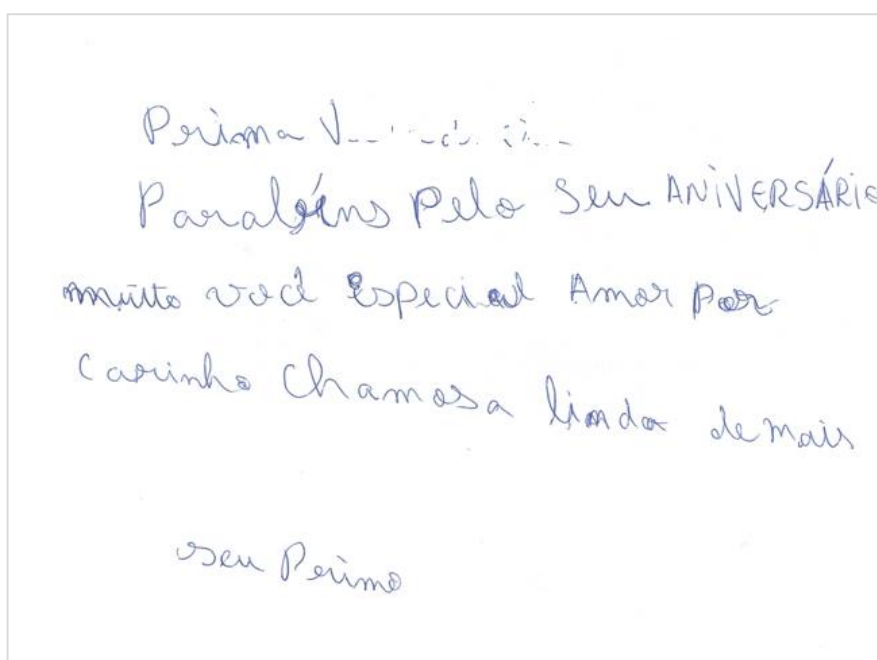 Prima
Parabéns Pelo Seu ANIVERSÁRIO
muitto você Especial Amor por
Carinho Chamosa linda demais
seu Primo